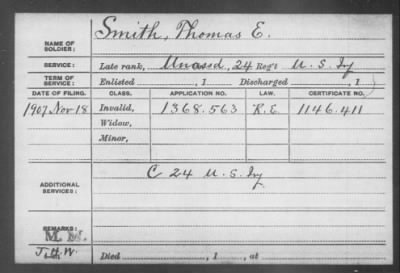 NAME OF SOLDIER: Smith, Thomas E.
SERVICE: Late rank, Unassd, 24 Reg't U.S. Inf
TERM OF SERVICE: Enlisted , 1 Discharged , 1
DATE OF FILING. CLASS. APPLICATION NO. LAW. CERTIFICATE NO.
1907 Nov 18 Invalid, 1368.563 R.E. 1146.411
Widow,
Minor,
ADDITIONAL SERVICES: C 24 U.S. Inf
REMARKS:
J.H.W. Died , 1 , at